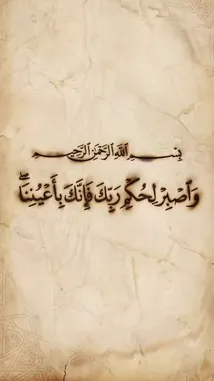 بِسْمِ ٱللَّهِ ٱلرَّحْمَٰنِ ٱلرَّحِيمِ
وَٱصْبِرْ لِحُكْمِ رَبِّكَ فَإِنَّكَ بِأَعْيُنِنَاۖ